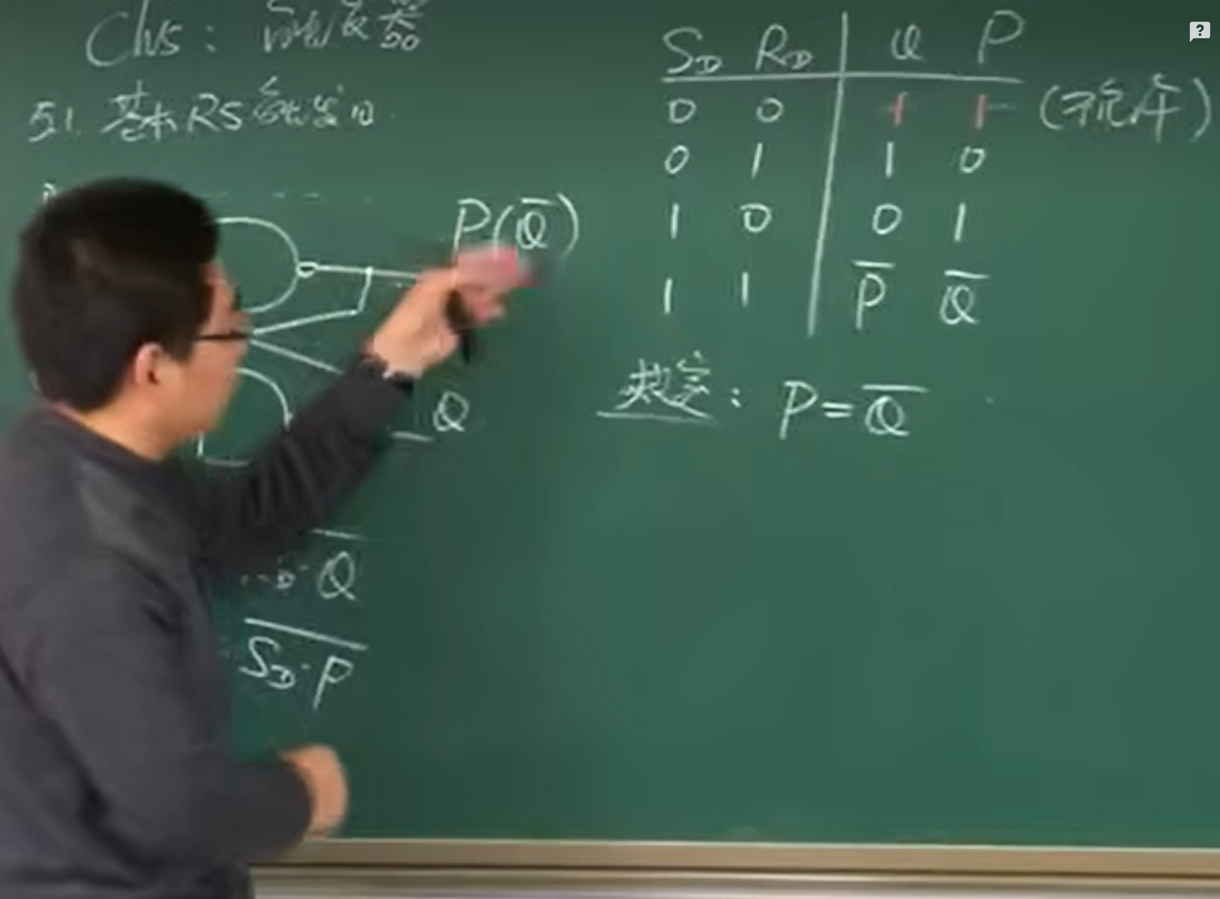 Ch5: 触发器
5.1. 基本RS触发器
P(Q̅)
Q
Q
S_D·P
S_D R_D Q P
0 0 1 1 (不允许)
0 1 1 0
1 0 0 1
1 1 P̅ Q̅
规定: P=Q̅